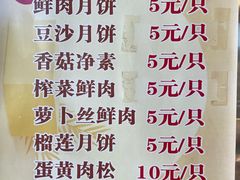 鲜肉月饼 5元/只
豆沙月饼 5元/只
香菇净素 5元/只
榨菜鲜肉 5元/只
萝卜丝鲜肉 5元/只
榴莲月饼 5元/只
蛋黄肉松 10元/只